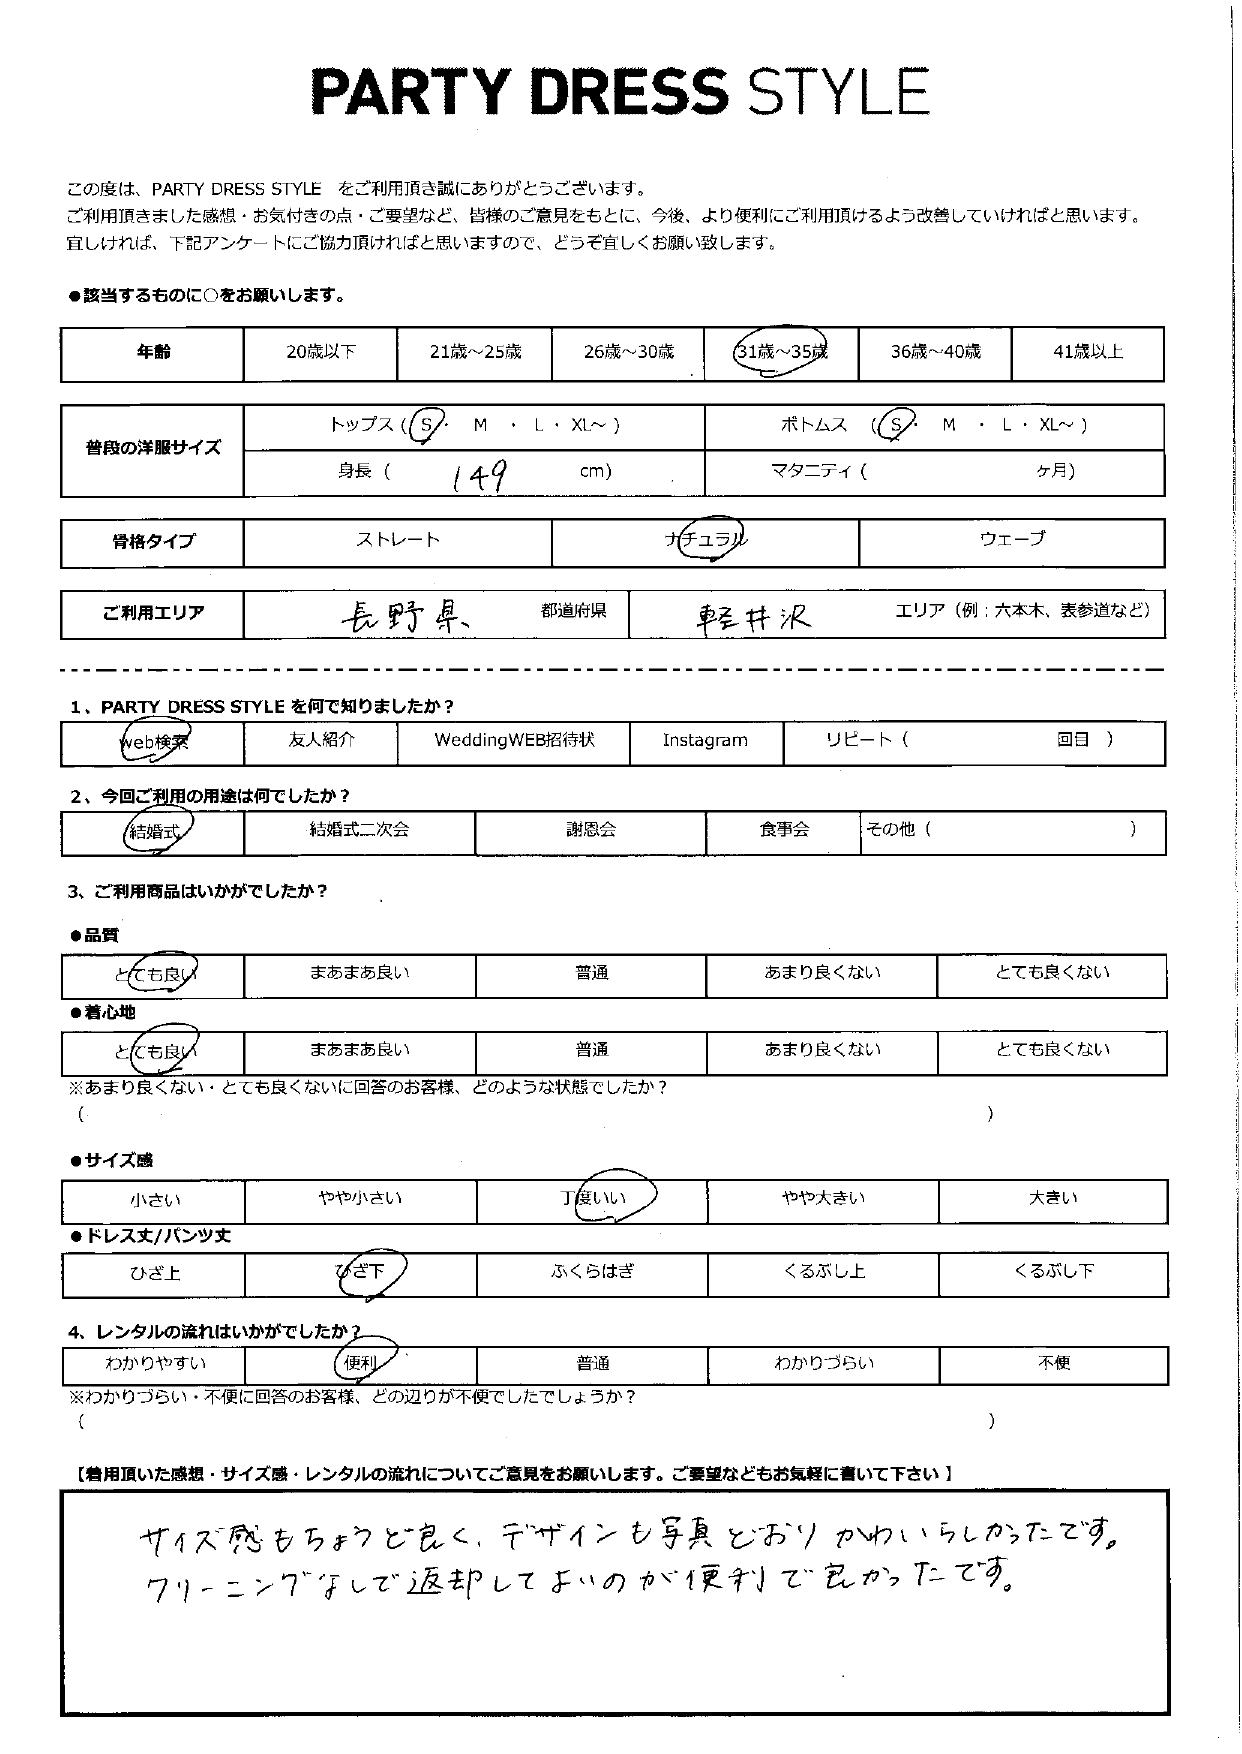 PARTY DRESS STYLE
この度は、PARTY DRESS STYLE をご利用頂き誠にありがとうございます。
ご利用頂きました感想・お気付きの点・ご要望など、皆様のご意見をもとに、今後、より便利にご利用頂けるよう改善していければと思います。
宜しければ、下記アンケートにご協力頂ければと思いますので、どうぞ宜しくお願い致します。
●該当するものに○をお願いします。
年齢 20歳以下 21歳～25歳 26歳～30歳 31歳～35歳 36歳～40歳 41歳以上
普段の洋服サイズ トップス (S・ M ・ L ・ XL～ ) ボトムス (S・ M ・ L ・ XL～ )
身長 ( 149 cm) マタニティ ( ヶ月)
骨格タイプ ストレート ナチュラル ウェーブ
ご利用エリア 長野県、 都道府県 軽井沢 エリア (例：六本木、表参道など)
1、PARTY DRESS STYLE を何で知りましたか？
web検索 友人紹介 WeddingWEB招待状 Instagram リピート ( 回目 )
2、今回ご利用の用途は何でしたか？
結婚式 結婚式二次会 謝恩会 食事会 その他 ( )
3、ご利用商品はいかがでしたか？
●品質
とても良い まあまあ良い 普通 あまり良くない とても良くない
●着心地
とても良い まあまあ良い 普通 あまり良くない とても良くない
※あまり良くない・とても良くないに回答のお客様、どのような状態でしたか？
( )
●サイズ感
小さい やや小さい 丁度いい やや大きい 大きい
●ドレス丈/パンツ丈
ひざ上 ひざ下 ふくらはぎ くるぶし上 くるぶし下
4、レンタルの流れはいかがでしたか？
わかりやすい 便利 普通 わかりづらい 不便
※わかりづらい・不便に回答のお客様、どの辺りが不便でしたでしょうか？
( )
【着用頂いた感想・サイズ感・レンタルの流れについてご意見をお願いします。ご要望などもお気軽に書いて下さい 】
サイズ感もちょうど良く、デザインも写真どおりかわいらしかったです。
クリーニングなしで返却してよいのが便利で良かったです。